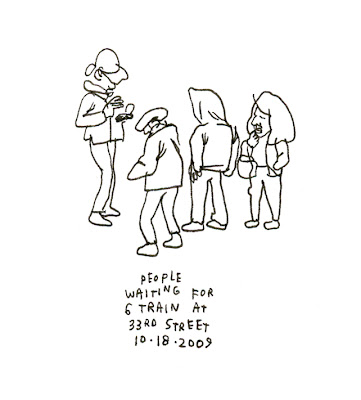 PEOPLE
WAITING FOR
6 TRAIN AT
33RD STREET
10.18.2009